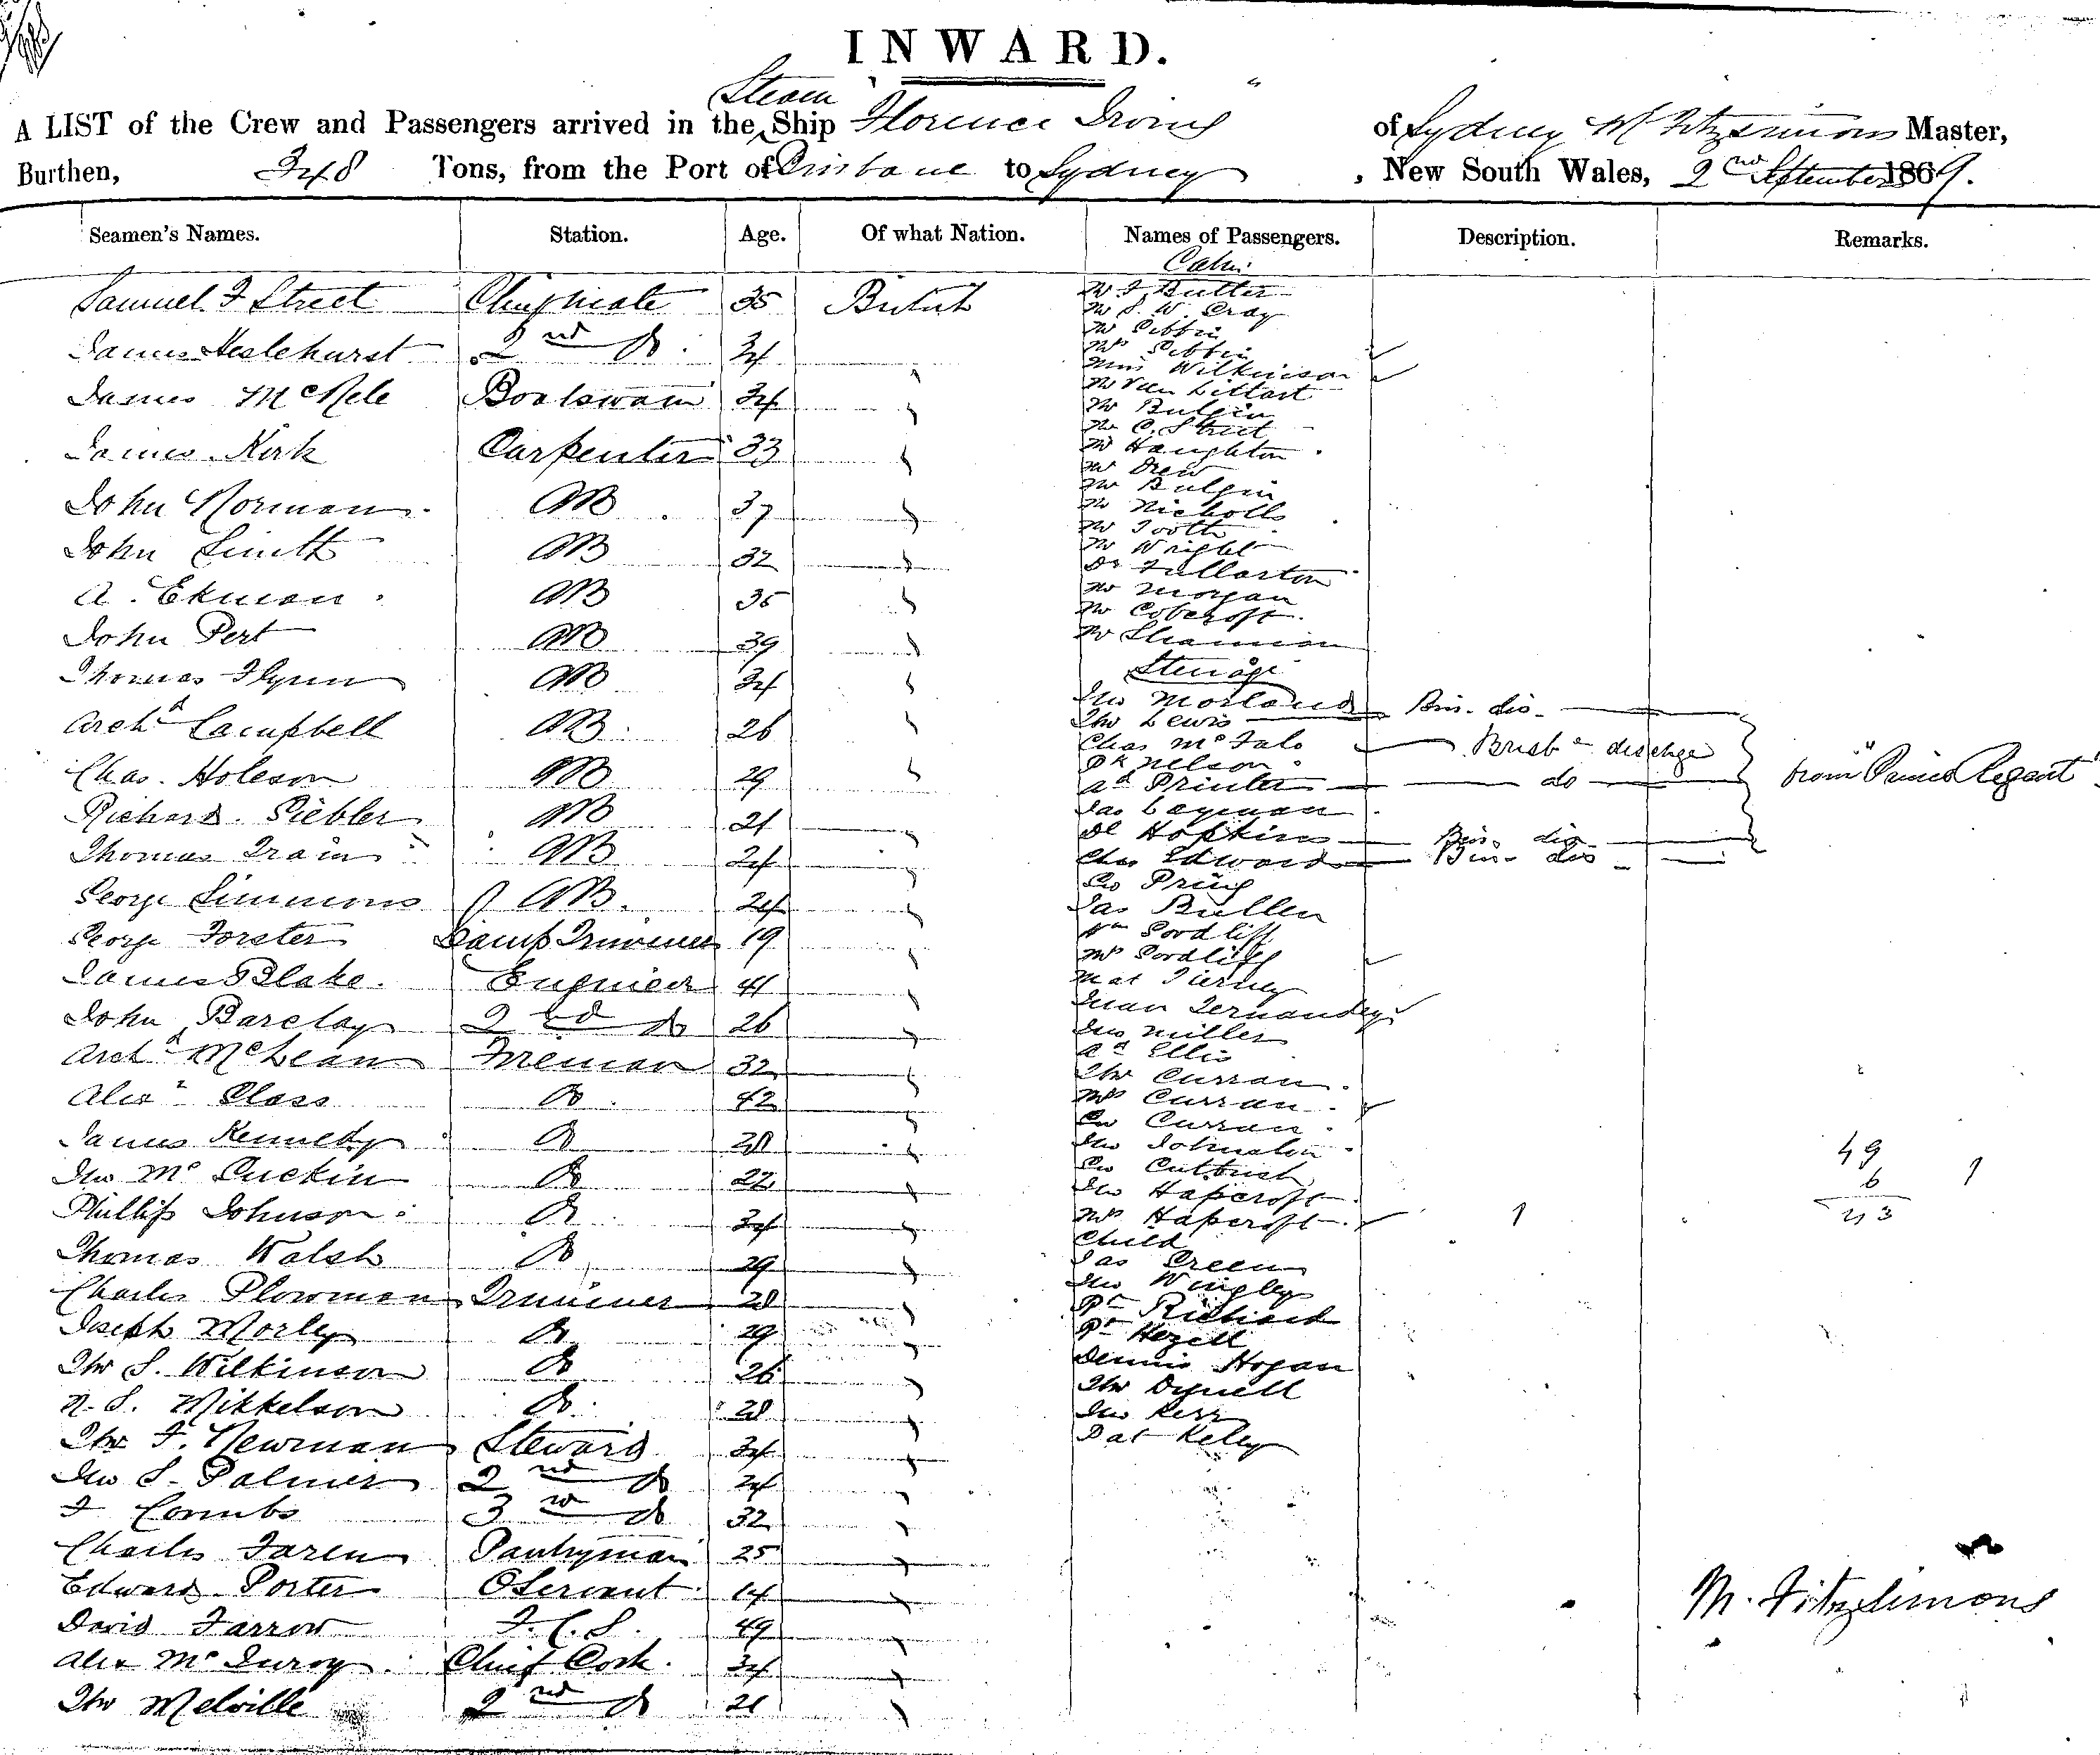 INWARD.
A LIST of the Crew and Passengers arrived in the Steam Ship Florence Irving of Sydney M Fitzsimons Master,
Burthen, 348 Tons, from the Port of Brisbane to Sydney, New South Wales, 2nd September 1869.
Seamen's Names. Station. Age. Of what Nation. Names of Passengers. Description. Remarks.
Cabin
Samuel F Street Chief Mate 35 British
James Heslehurst 2nd Do 34
James Boatswain 34
James Kirk Carpenter 33
John Norman AB 37
John Smith AB 32
A. Ekman AB 35
John Pert AB 39
Thomas Flynn AB 34
Archd Campbell AB 26
Chas. AB 29
Richard AB 21
Thomas AB 24
George Simmons AB 24
George Forster Lamp Trimmer 19
James Blake Engineer 41
John Barclay 2nd Do 26
Archd McLean Fireman 32
Alexr Do 42
James Kennedy Do
Jno Mc Do 22
Phillip Johnson Do 34
Thomas Walsh Do 29
Charles Plowman Trimmer 28
Joseph Morley Do 29
Thos S. Wilkinson Do 26
N. S. Mikkelson Do 28
Thos F. Newman Steward 34
Jno S. Palmer 2nd Do 24
F Coombs 3rd Do 32
Charles Pantryman 25
Edward Porter Servant 14
David Farrow F.C.S. 49
Alex Chief Cook 34
Thos Melville 2nd Do 21
Mr Butler
Mr S. W. Gray
Mr
Mrs
Miss Wilkinson
Mr
Mr Bulgin
Mr C. Street
Mr Haughton
Mr Drew
Mr Bulgin
Mr Nicholls
Mr Tooth
Mr Wright
Dr Fullarton
Mr Morgan
Mr Cobcroft
Mr Shannon
Steerage
Jno Morland Bris. dis.
Thos Lewis
Chas Brisbe dischge
Pk Nelson
Ad Printer do from "Prince Regent"
Jas Layman
Dl Hopkins Bris. dis.
Chas Edwards Bris. dis
Geo Pring
Jas Bullen
Wm
Mrs
Mat Tierney
Juan Fernandez
Jno Miller
Ad Ellis
Thos Curran
Mrs Curran
Geo Curran
Jno Johnston
Geo Cutbush
Jno Hapcroft
Mrs Hapcroft
Child
Jas Green
Jno Wingley
Pk
Pk Hezell
Dennis Hogan
Thos
Jno Kerr
Pat Kelly
49
6
43
M. Fitzsimons